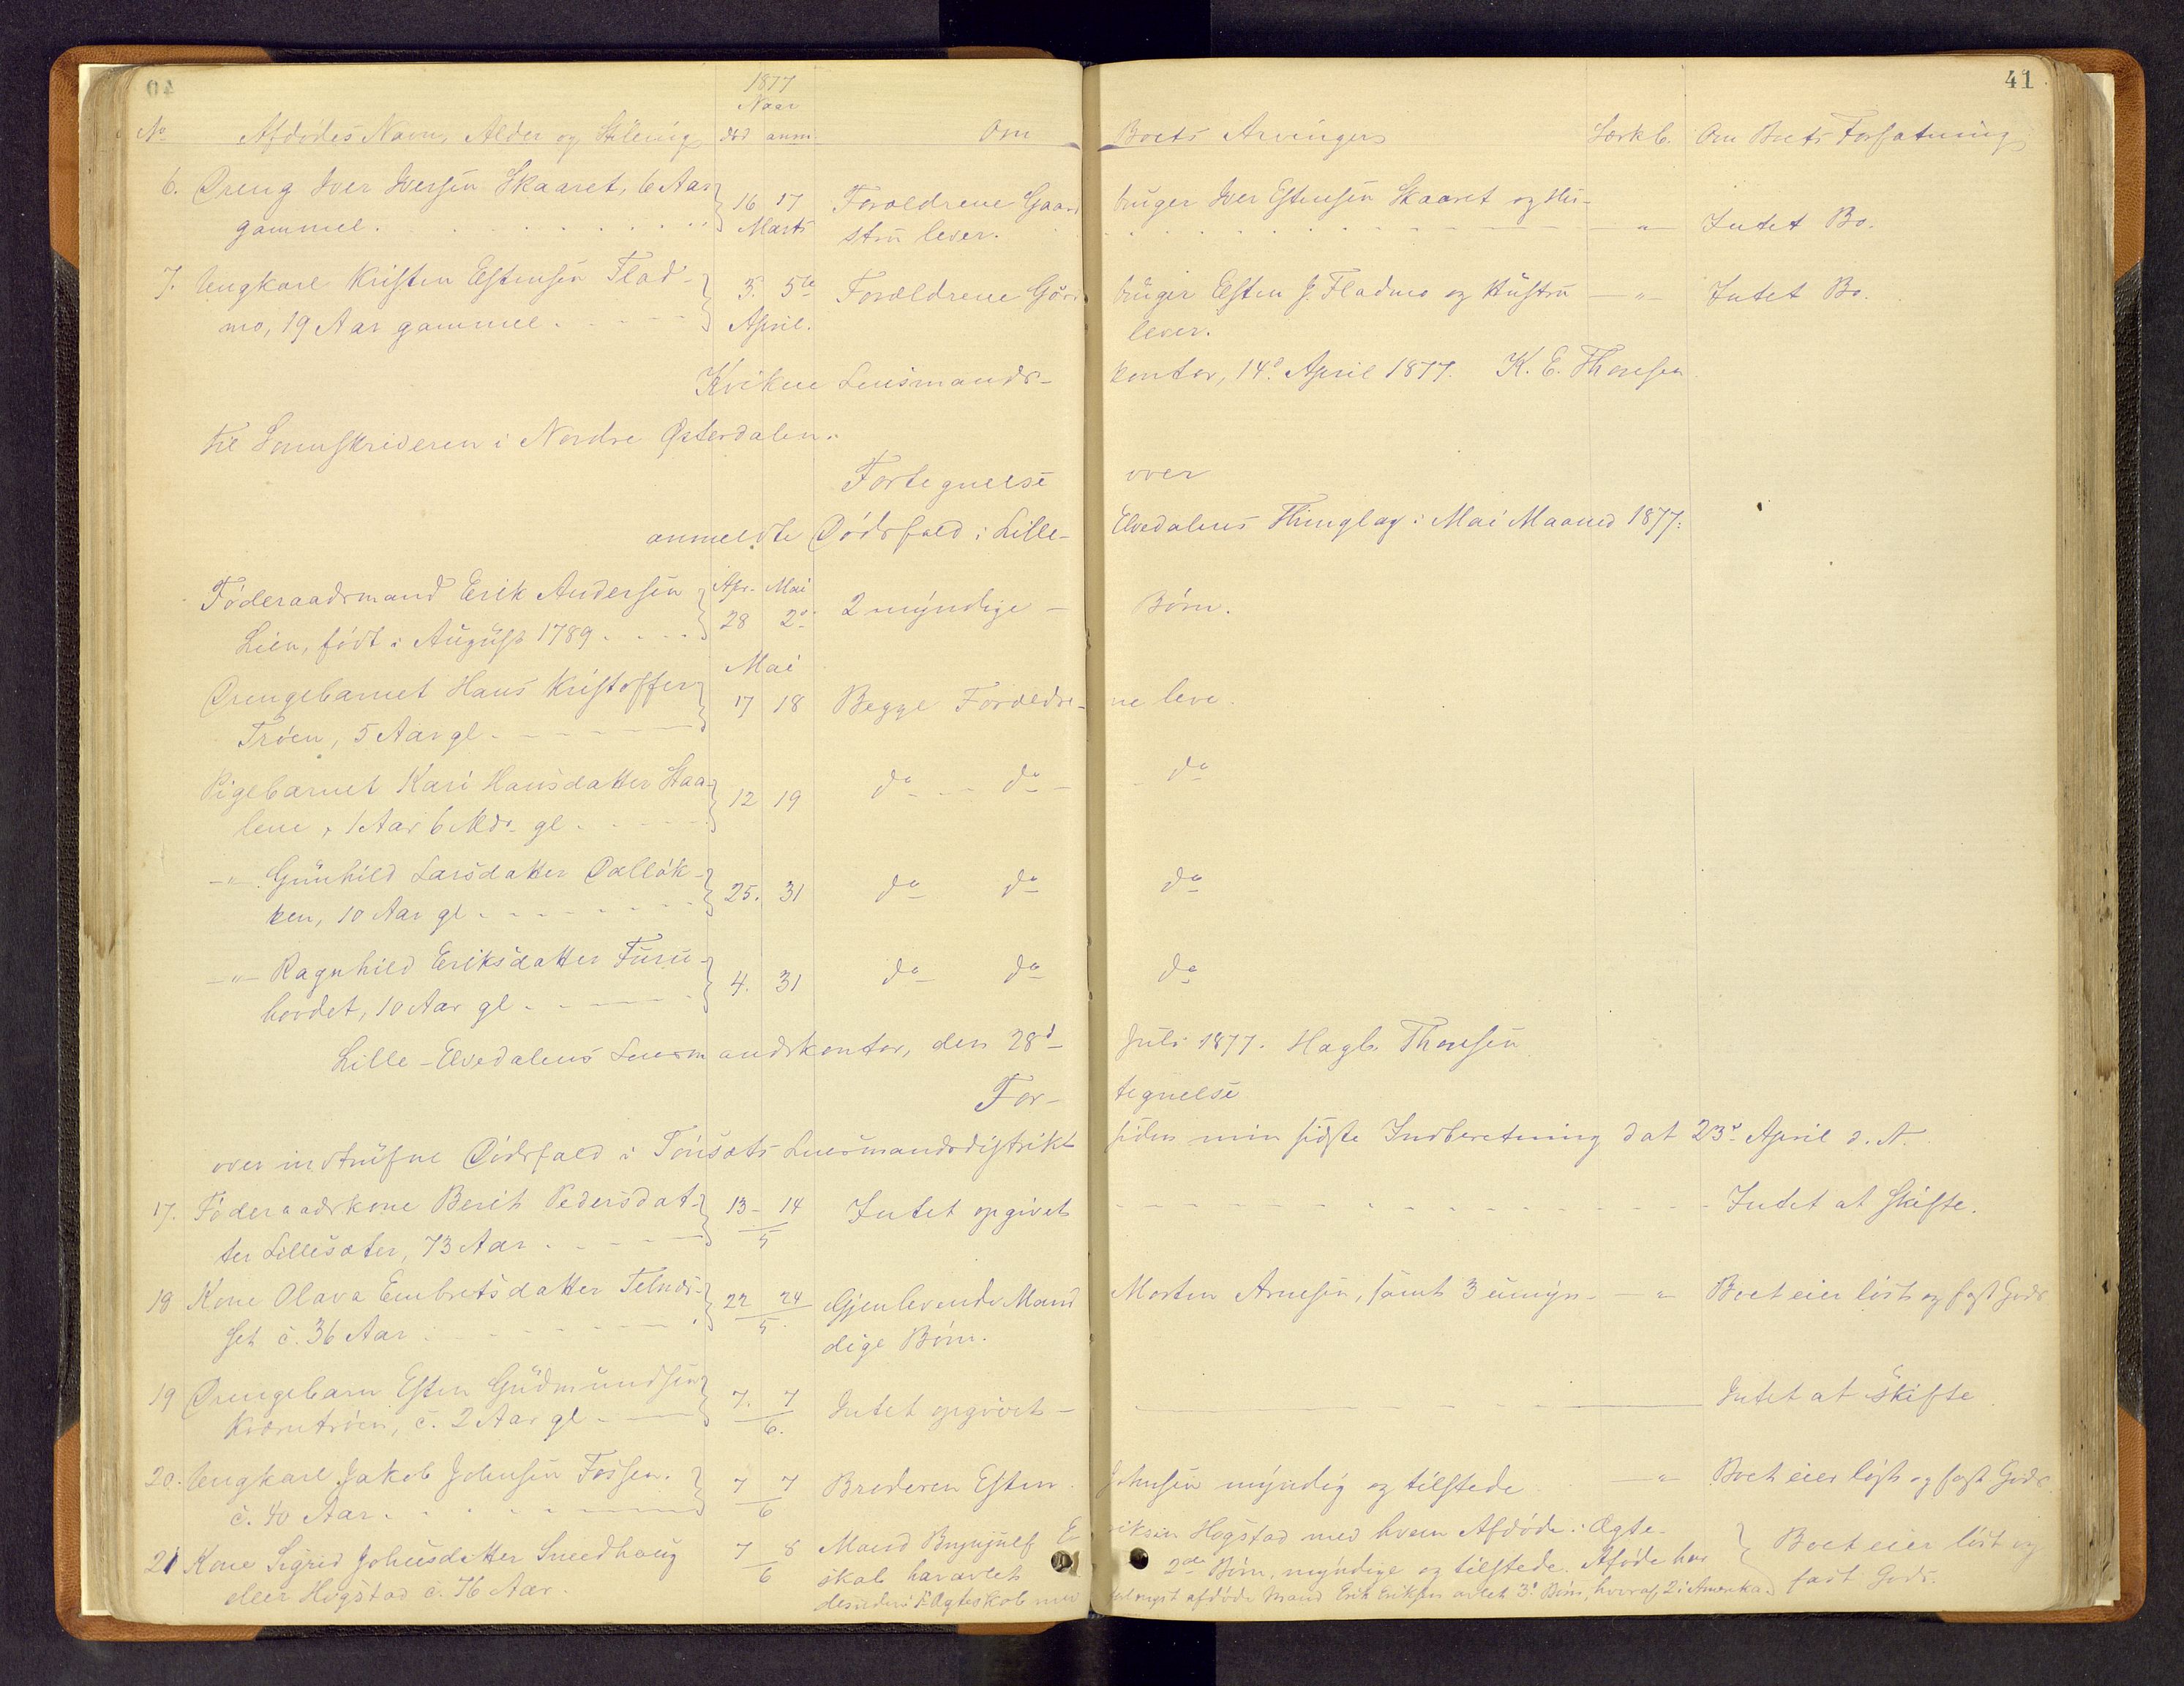 40
41
1877
Naar
No Afdødes Navn, Alder og Stilling død anm. Om Boets Arvinger Særkb. Om Boets Forfatning
6. Dreng Iver Iversen Skaaret, 6 Aar 16 17 Forældrene Gaard bruger Iver Estensen Skaaret og Hu-
gammel. Marts stru lever. — " — Intet Bo.
7. Ungkarl Kristen Estensen Flad- 3. 5te Forældrene bruger Esten J. Fladmo og Hustru — " — Intet Bo.
mo, 19 Aar gammel. April. lever.
Kvikne Lensmands- kontor, 14d April 1877. K. E. Thoresen
Til Sorenskriveren i Nordre Østerdalen.
Fortegnelse over
anmeldte Dødsfald i Lille- Elvedalens Thinglag i Mai Maaned 1877.
Føderaadsmand Erik Andersen Apr. Mai
Lien, født i August 1789 28 2d 2 myndige — Børn.
Mai
Drengebarnet Hans Kristoffer 17 18 Begge Forældre- ne leve.
Trøen, 5 Aar gl.
Pigebarnet Kari Hansdatter Staa- 12 19 do do do
lene, 1 Aar 6 Mdr. gl.
— " — Gunhild Larsdatter Dalløk- 25. 31 do do do
ken, 10 Aar gl.
— " — Ragnhild Eriksdatter Furu- 4. 31 do do do
hovdet, 10 Aar gl.
Lille-Elvedalens Lensmandskontor, den 28d Juli 1877. Hagb. Thoresen
For- tegnelse
over indtrufne Dødsfald i Tønsæts Lensmandsdistrikt siden min sidste Indberetning dat 23d April d. A.
17. Føderaadskone Berit Pedersdat- 13 - 14 Intet opgivet Intet at skifte.
ter Lillesæter, 73 Aar 5
18 Kone Olava Embretsdatter Telnes- 22 24 Gjenlevende Mand Morten Arnesen, samt 3 umyn- — " Boet eier løst og fast Gods
set c. 36 Aar 5. dige Børn.
19 Drengebarn Esten Gudmundsen 7. 7 Intet opgivet — Intet at skifte
Kværntrøen, c. 2 Aar gl 6.
20. Ungkarl Jakob Johnsen Fossen. 7 7 Broderen Esten Johnsen myndig og tilstede — " Boet eier løst og fast Gods.
c. 40 Aar. 6
21 Kone Sigrid Johnsdatter Sneedhaug 7 8 Mand Brynjulf E- riksen Hogstad med hvem Afdøde i Ægte- Boet eier løst og
eller Hogstad c. 76 Aar. 6 skab har avlet 2de Børn, myndige og tilstede. Afdøde har fast Gods.
desuden i Ægteskab med afdøde Mand Erik Eriksen avlet 3 Børn, hvoraf 2 i Amerika.